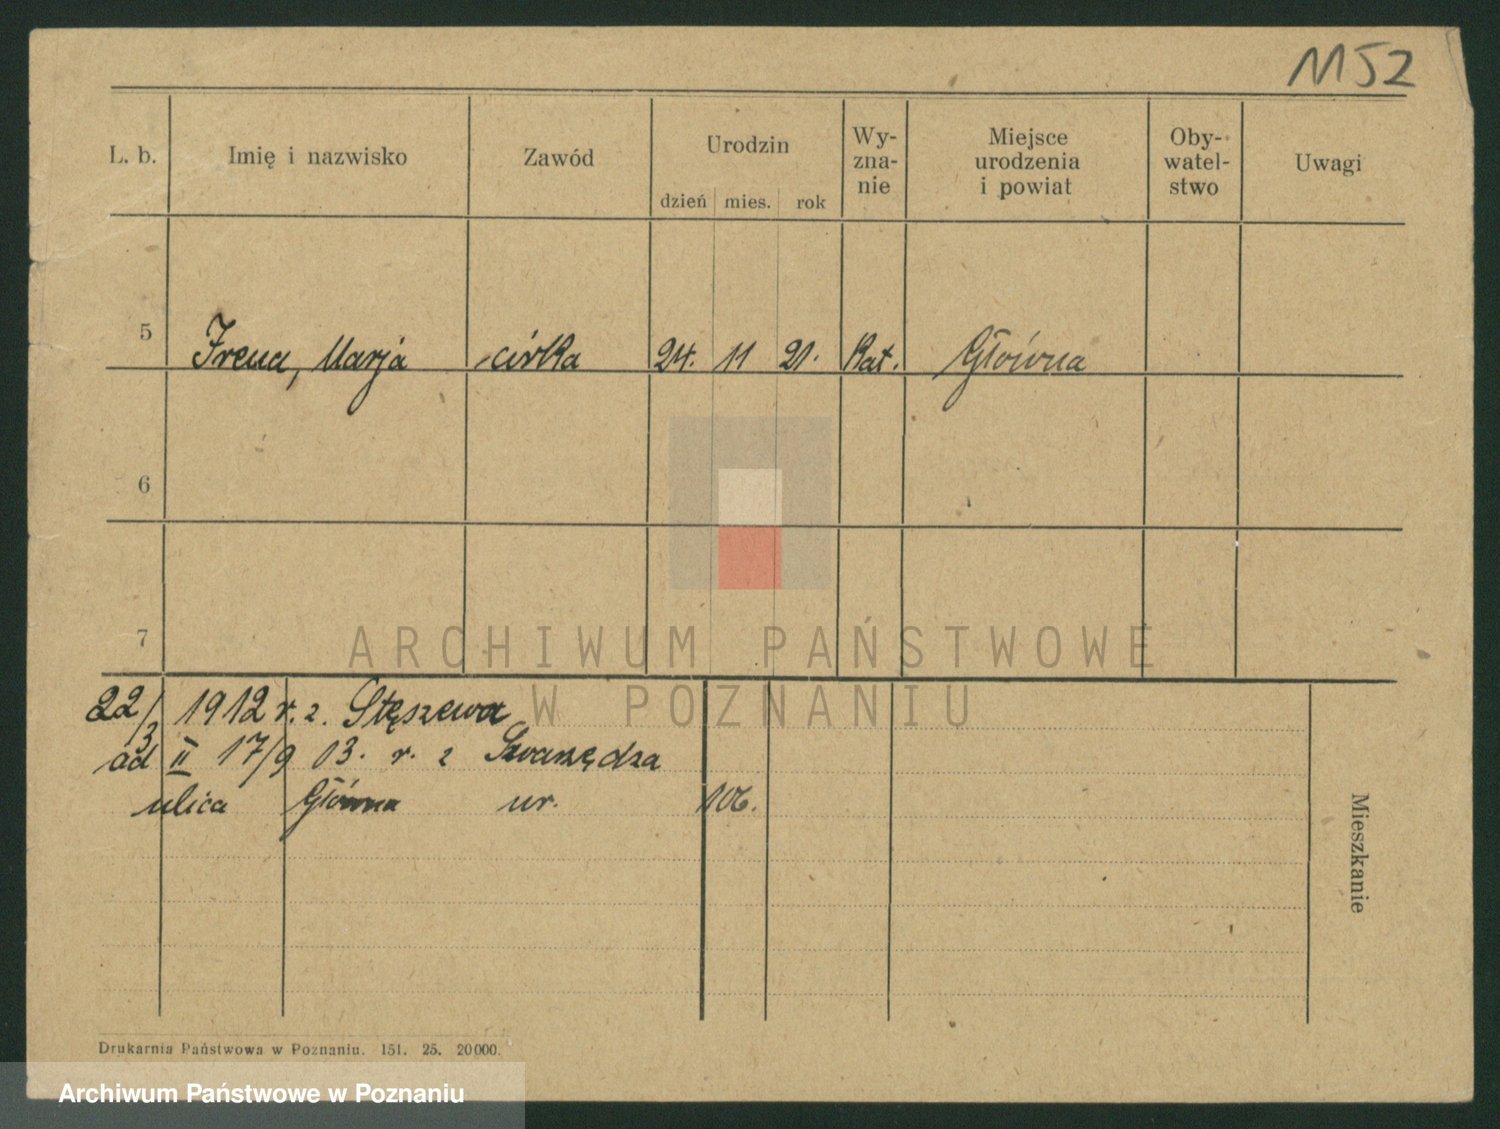 1152
L. b. Imię i nazwisko Zawód Urodzin dzień mies. rok Wy-zna-nie Miejsce urodzenia i powiat Oby-watel-stwo Uwagi
5 Irena, Marja córka 24. 11 21. Kat. Główna
6
7
ARCHIWUM PAŃSTWOWE
W POZNANIU
22/3 1912 r. z. Stęszewa
ad II 17/9 13. r. z Swarzędza
ulica Główna nr. 106.
Mieszkanie
Drukarnia Państwowa w Poznaniu. 151. 25. 20000.
Archiwum Państwowe w Poznaniu